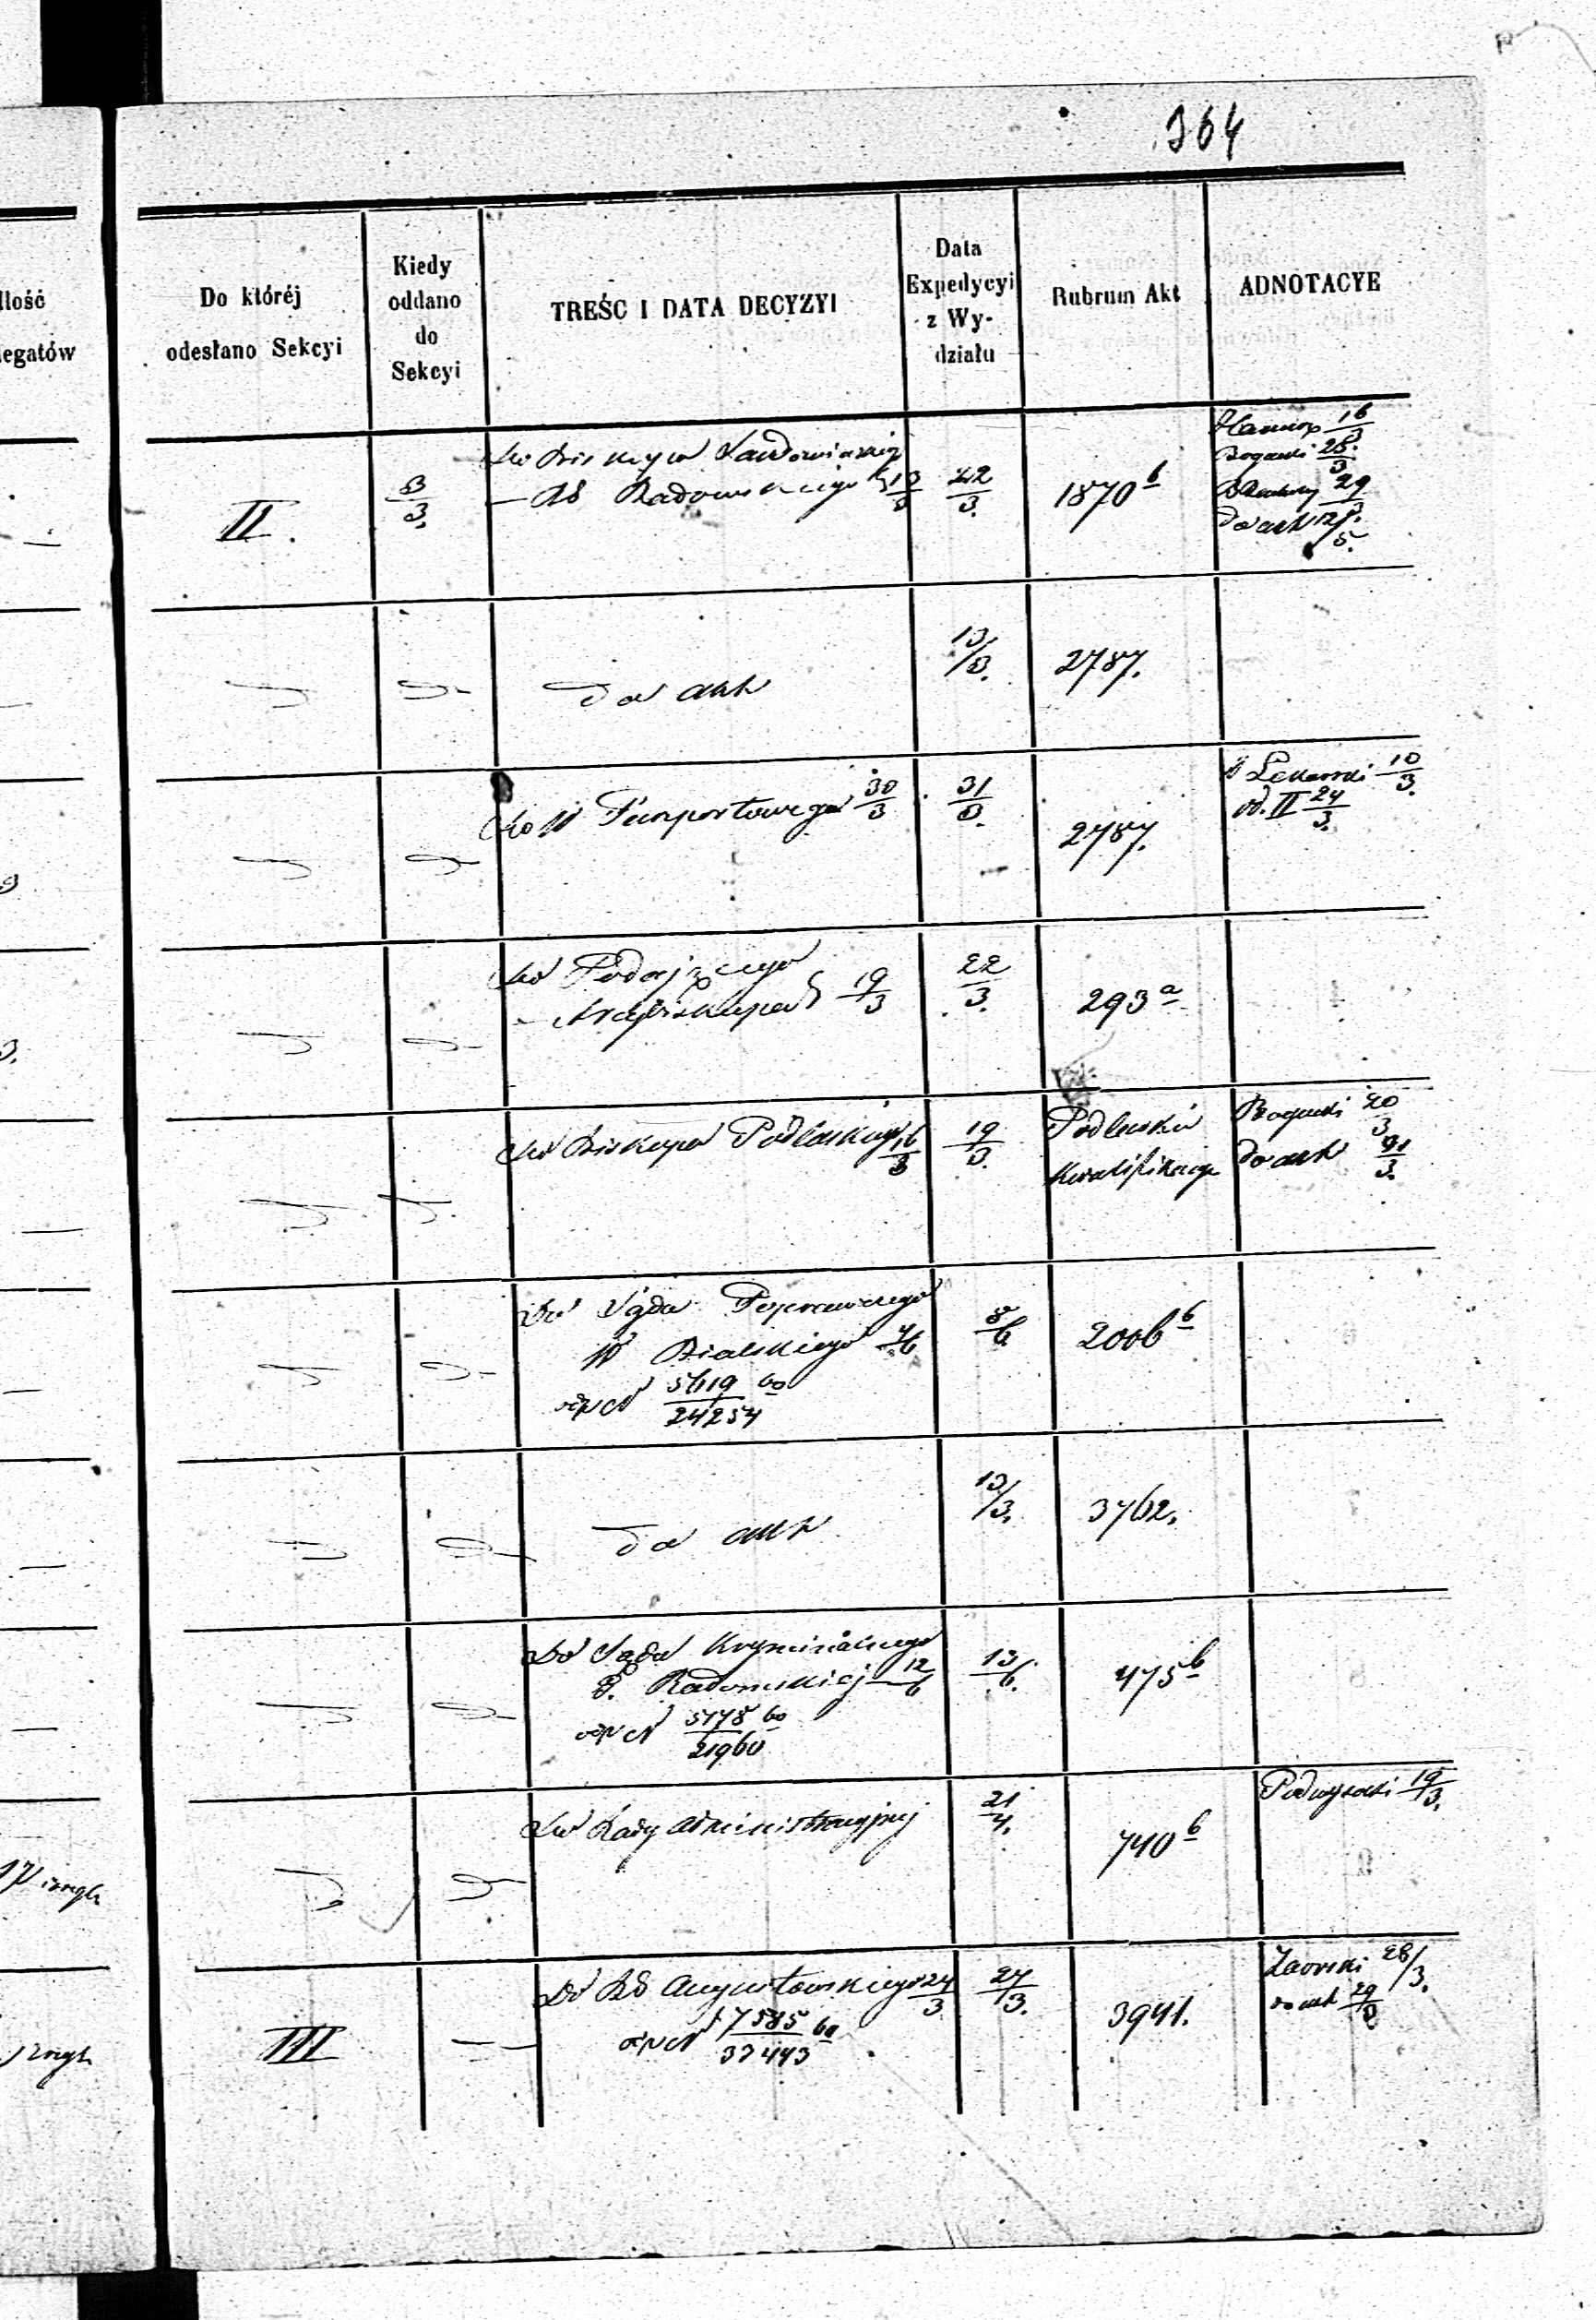 364
Do któréj
odesłano Sekcyi
Kiedy
oddano
do
Sekcyi
TREŚC I DATA DECYZYI
Data
Expedycyi
z Wy-
działu
Rubrum Akt
ADNOTACYE
łlość
legatów
II.
3/3.
Do Biskupa Sandomirskiego
Radomskiego 13/3
22/3.
1870 b
16/3
Bogacki 28/3
29/3
do akt 12/5.
do akt
13/3.
2787.
Do W Paszportowego 30/3
31/3.
2787.
Lekarski 10/3.
od. II 24/3.
Do Podejrzcego
Arcybiskupa 19/3
22/3.
293 a
Do Biskupa Podlaskiego 16/3
19/3.
Podlaska
Kwalifikacye
Bogacki 20/3
do akt 31/3.
Do Sądu Poprawczego
W Bialskiego 7/6
odp N 5619/24254 60
8/6
2006 b
do akt
13/3.
3762.
Do Sądu Kryminalnego
G. Radomskiej 12/6
odp N 5178/21960 60
13/6.
475 b
Do Rady Administracyjnej
21/4.
740 b
Podwysocki 19/3.
III
Do RG Augustowskiego 24/3
odp N 17585/33443 60
27/3.
3941.
Zaorski 28/3.
do akt 29/3